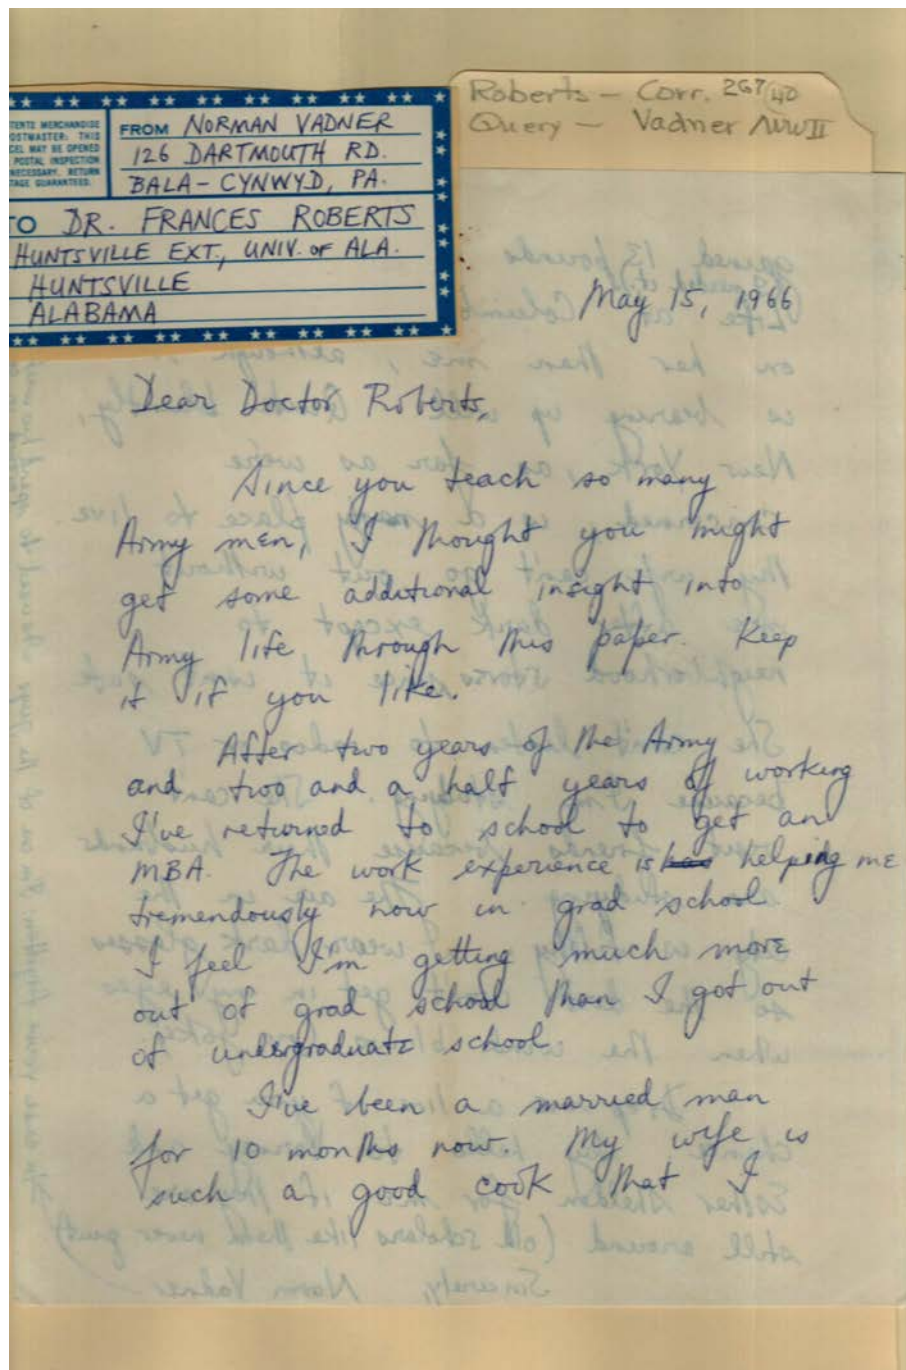 Roberts – Corr. 267 40
Query – Vadner WWII
POSTMASTER: THIS
PARCEL MAY BE OPENED
POSTAL INSPECTION
NECESSARY. RETURN
GUARANTEED.
FROM NORMAN VADNER
126 DARTMOUTH RD.
BALA-CYNWYD, PA.
TO DR. FRANCES ROBERTS
HUNTSVILLE EXT., UNIV. OF ALA.
HUNTSVILLE
ALABAMA
May 15, 1966
Dear Doctor Roberts,
Since you teach so many
Army men, I thought you might
get some additional insight into
Army life through this paper. Keep
it if you like.
After two years of the Army
and two and a half years of working
I've returned to school to get an
MBA. The work experience is has helping me
tremendously now in grad school
I feel I'm getting much more
out of grad school than I got out
of undergraduate school
I've been a married man
for 10 months now. My wife is
such a good cook that I